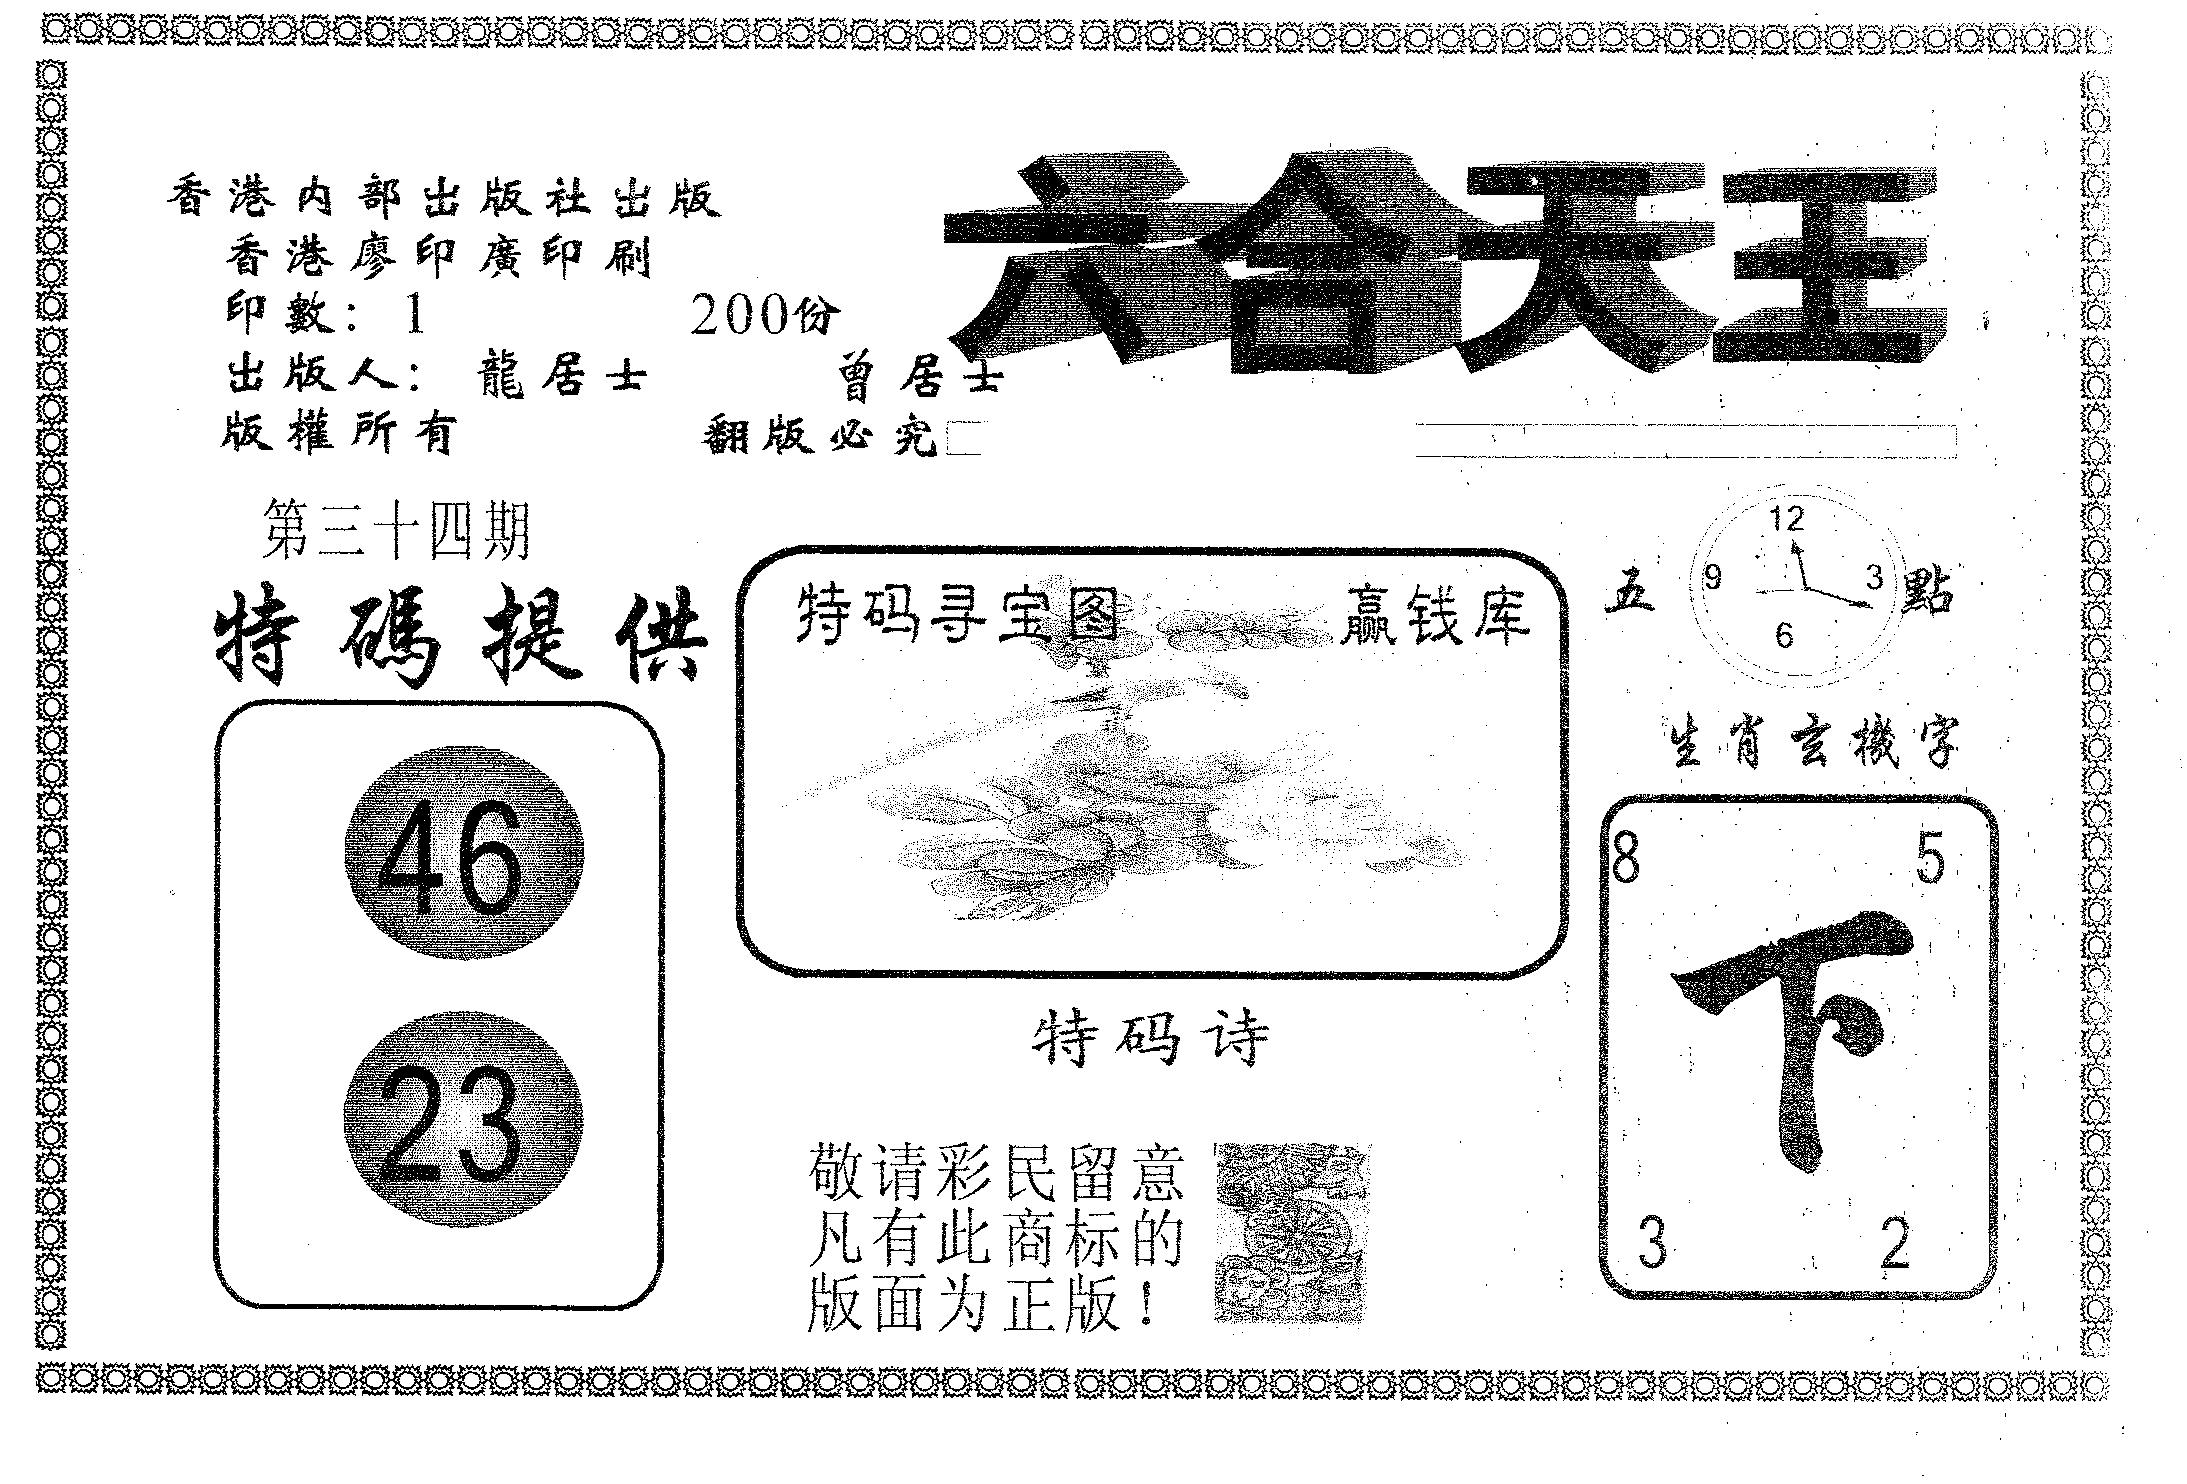 六合天王
香港内部出版社出版
香港廖印廣印刷
印數：1 200份
出版人：龍居士 曾居士
版權所有 翻版必究
第三十四期
特碼提供
46
23
特码寻宝图 赢钱库
特码诗
敬请彩民留意
凡有此商标的
版面为正版！
五 點
12
9 3
6
生肖玄機字
8 5
下
3 2